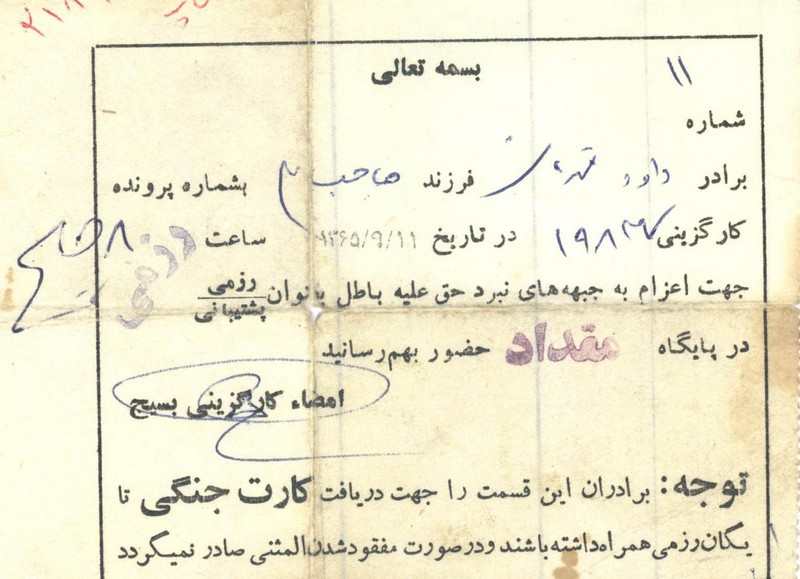 بسمه تعالی
۱۱
شماره
برادر داود فرزند صاحب بشماره پرونده
کارگزینی در تاریخ ۱۳۶۵/۹/۱۱ ساعت ۸ صبح
جهت اعزام به جبهه‌های نبرد حق علیه باطل بانوان رزمی پشتیبانی
رزمی
در پایگاه مقداد حضور بهم‌رسانید
امضاء کارگزینی بسیج
توجه: برادران این قسمت را جهت دریافت کارت جنگی تا
یگان رزمی همراه داشته باشند و در صورت مفقود شدن المثنی صادر نمیگردد